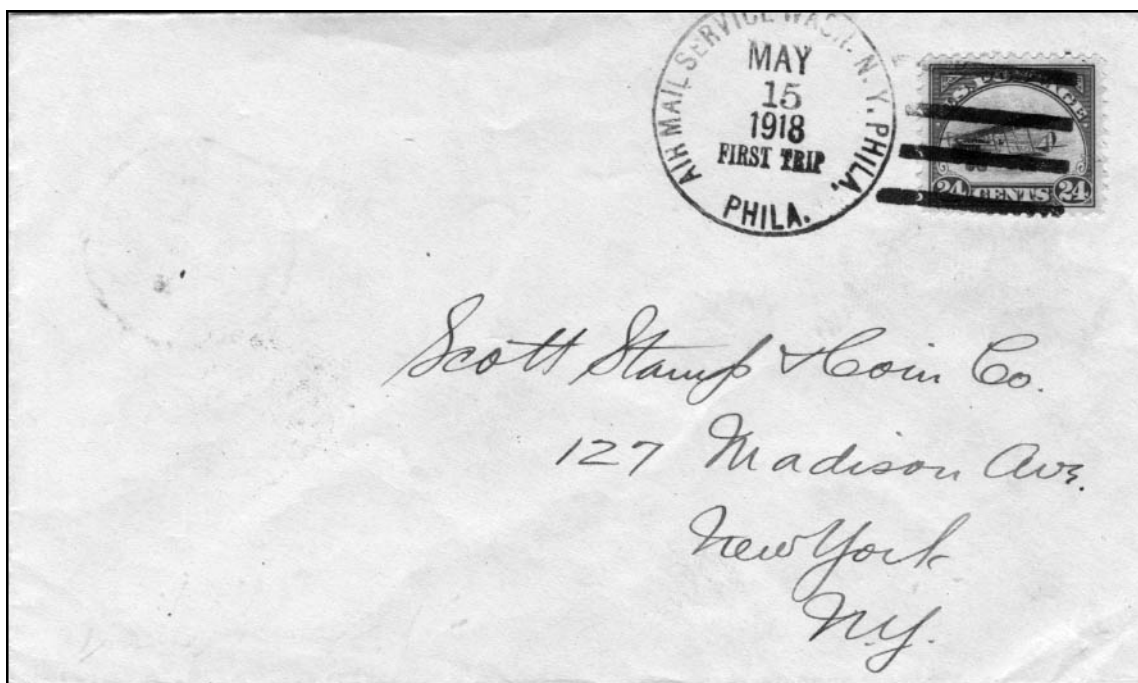 AIR MAIL SERVICE WASH. N. Y. PHILA.
MAY
15
1918
FIRST TRIP
PHILA.
U.S. POSTAGE
24 CENTS 24
Scott Stamp & Coin Co.
127 Madison Ave.
New York
N.Y.